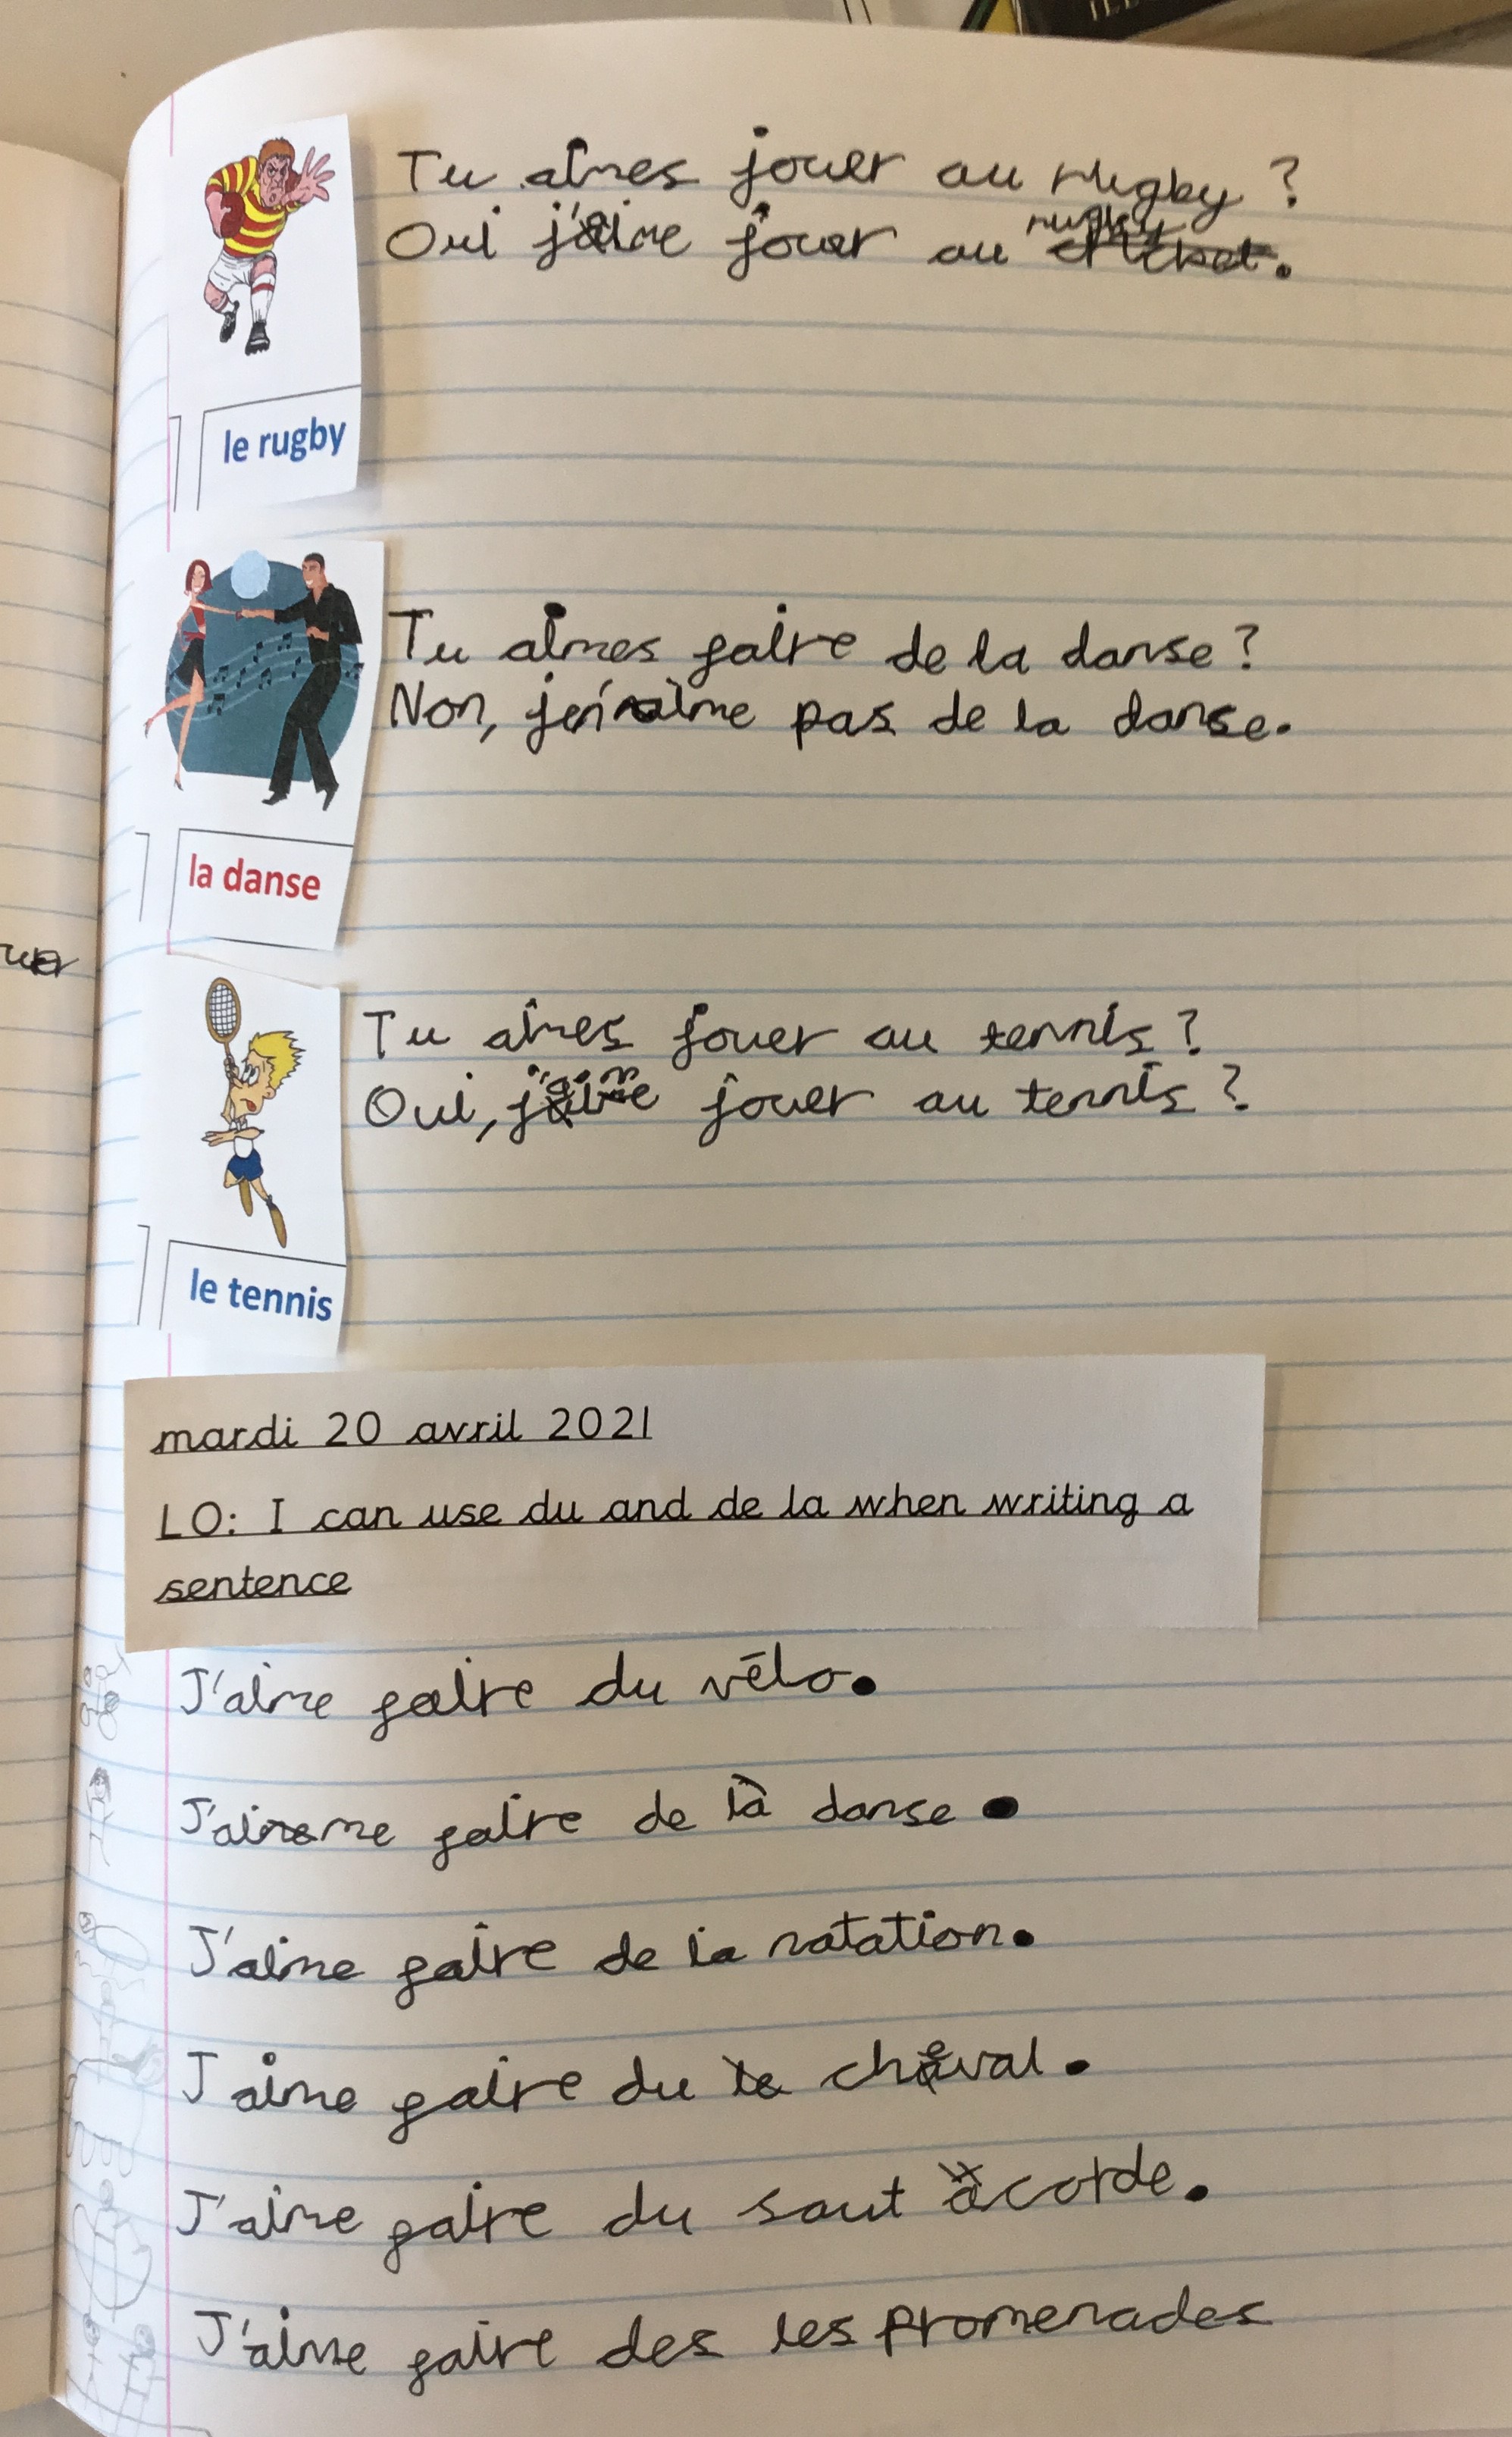 Tu aimes jouer au rugby ?
Oui j'aime jouer au rugby.
le rugby
Tu aimes faire de la danse ?
Non, je n'aime pas de la danse.
la danse
Tu aimes jouer au tennis ?
Oui, j'aime jouer au tennis ?
le tennis
mardi 20 avril 2021
LO: I can use du and de la when writing a
sentence
J'aime faire du vélo.
J'aime faire de la danse.
J'aime faire de la natation.
J aime faire du cheval.
J'aime faire du saut à corde.
J'aime faire des les promenades